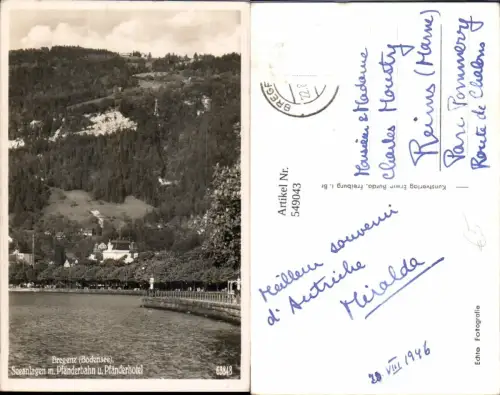 Bregenz (Bodensee).
Seeanlagen m. Pfänderbahn u. Pfänderhotel
63843
BREGE
22.8
Artikel Nr.
549043
Monsieur & Madame
Charles
Reims (Marne)
Parc Pommery
Route de Chalons
Kunstverlag Erwin Burda, Freiburg i. Br
Meilleur souvenir
d'Autriche
Miralda
20 VIII 1946
Echte Fotografie